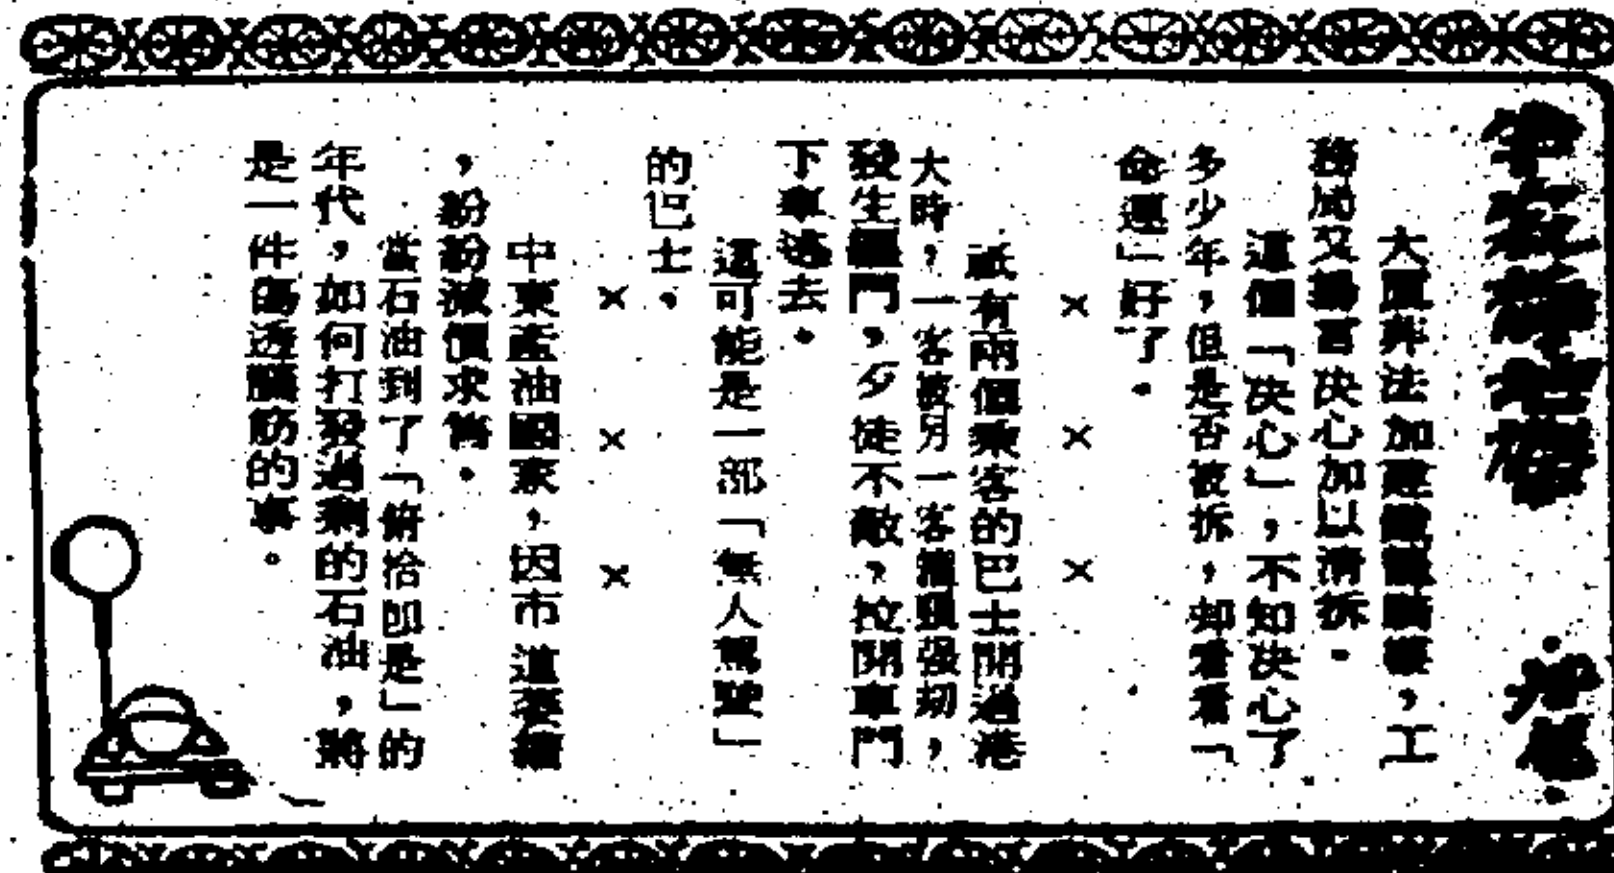 大廈非法加建
務局又揚言决心加以清拆。
這個「决心」，不知决心了
多少年，但是否被拆，却看看「
命運」好了。
× × ×
祇有兩個乘客的巴士開過港
大時，一客被另一客強刧，
發生糾鬥，歹徒不敵，拉開車門
下車逃去。
這可能是一部「無人駕駛」
的巴士。
× × ×
中東產油國家，因市道萎縮
，紛紛減價求售。
當石油到了「俯拾卽是」的
年代，如何打發過剩的石油，將
是一件傷透腦筋的事。